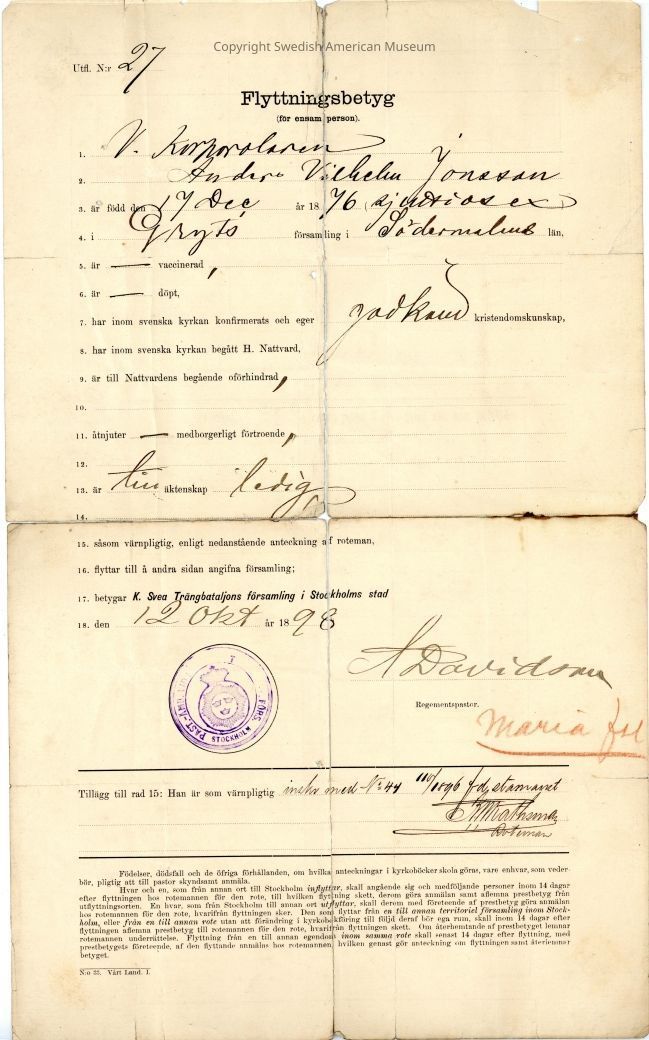 Copyright Swedish American Museum
Utfl. N:r 27
Flyttningsbetyg
(för ensam person).
1. V. Korporalaren
2. Anders Vilhelm Jonsson
3. är född den 17 Dec år 1876 (sjuttiosex)
4. i Gryts församling i Södermanlands län,
5. är — vaccinerad,
6. är — döpt,
7. har inom svenska kyrkan konfirmerats och eger godkänd kristendomskunskap,
8. har inom svenska kyrkan begått H. Nattvard,
9. är till Nattvardens begående oförhindrad,
10.
11. åtnjuter — medborgerligt förtroende,
12.
13. är till äktenskap ledig,
14.
15. såsom värnpligtig, enligt nedanstående anteckning af roteman,
16. flyttar till å andra sidan angifna församling;
17. betygar K. Svea Trängbataljons församling i Stockholms stad
18. den 12 Okt år 1898
PAST.-ÄMB. FÖRS. STOCKHOLM
A Davidson
Regementspastor.
Maria
Tillägg till rad 15: Han är som värnpligtig inskr med No 44 1896
Roteman
Födelser, dödsfall och de öfriga förhållanden, om hvilka anteckningar i kyrkoböcker skola göras, vare enhvar, som veder-
bör, pligtig att till pastor skyndsamt anmäla.
Hvar och en, som från annan ort till Stockholm inflyttar, skall angående sig och medföljande personer inom 14 dagar
efter flyttningen hos rotemannen för den rote, till hvilken flyttning skett, derom göra anmälan samt aflemna prestbetyg från
utflyttningsorten. En hvar, som från Stockholm till annan ort utflyttar, skall derom med företeende af prestbetyg göra anmälan
hos rotemannen för den rote, hvarifrån flyttningen sker. Den som flyttar från en till annan territoriel församling inom Stock-
holm, eller från en till annan rote utan att förändring i kyrkobokföring till följd deraf bör ega rum, skall inom 14 dagar efter
flyttningen aflemna prestbetyg till rotemannen för den rote, hvarifrån flyttningen skett. Om återhemtande af prestbetyget lemnar
rotemannen underrättelse. Flyttning från en till annan egendom inom samma rote skall senast 14 dagar efter flyttning, med
prestbetygets företeende, af den flyttande anmälas hos rotemannen, hvilken genast gör anteckning om flyttningen samt återlemnar
betyget.
N:o 33. Vårt Land. I.